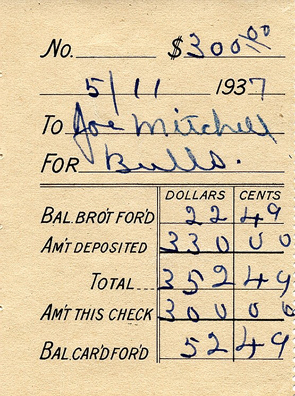 No. $300.00
5/11 1937
To Joe Mitchell
For Bulls.
DOLLARS CENTS
BAL. BRO'T FOR'D 22 49
AM'T DEPOSITED 330 00
TOTAL 352 49
AM'T THIS CHECK 300 00
BAL. CAR'D FOR'D 52 49